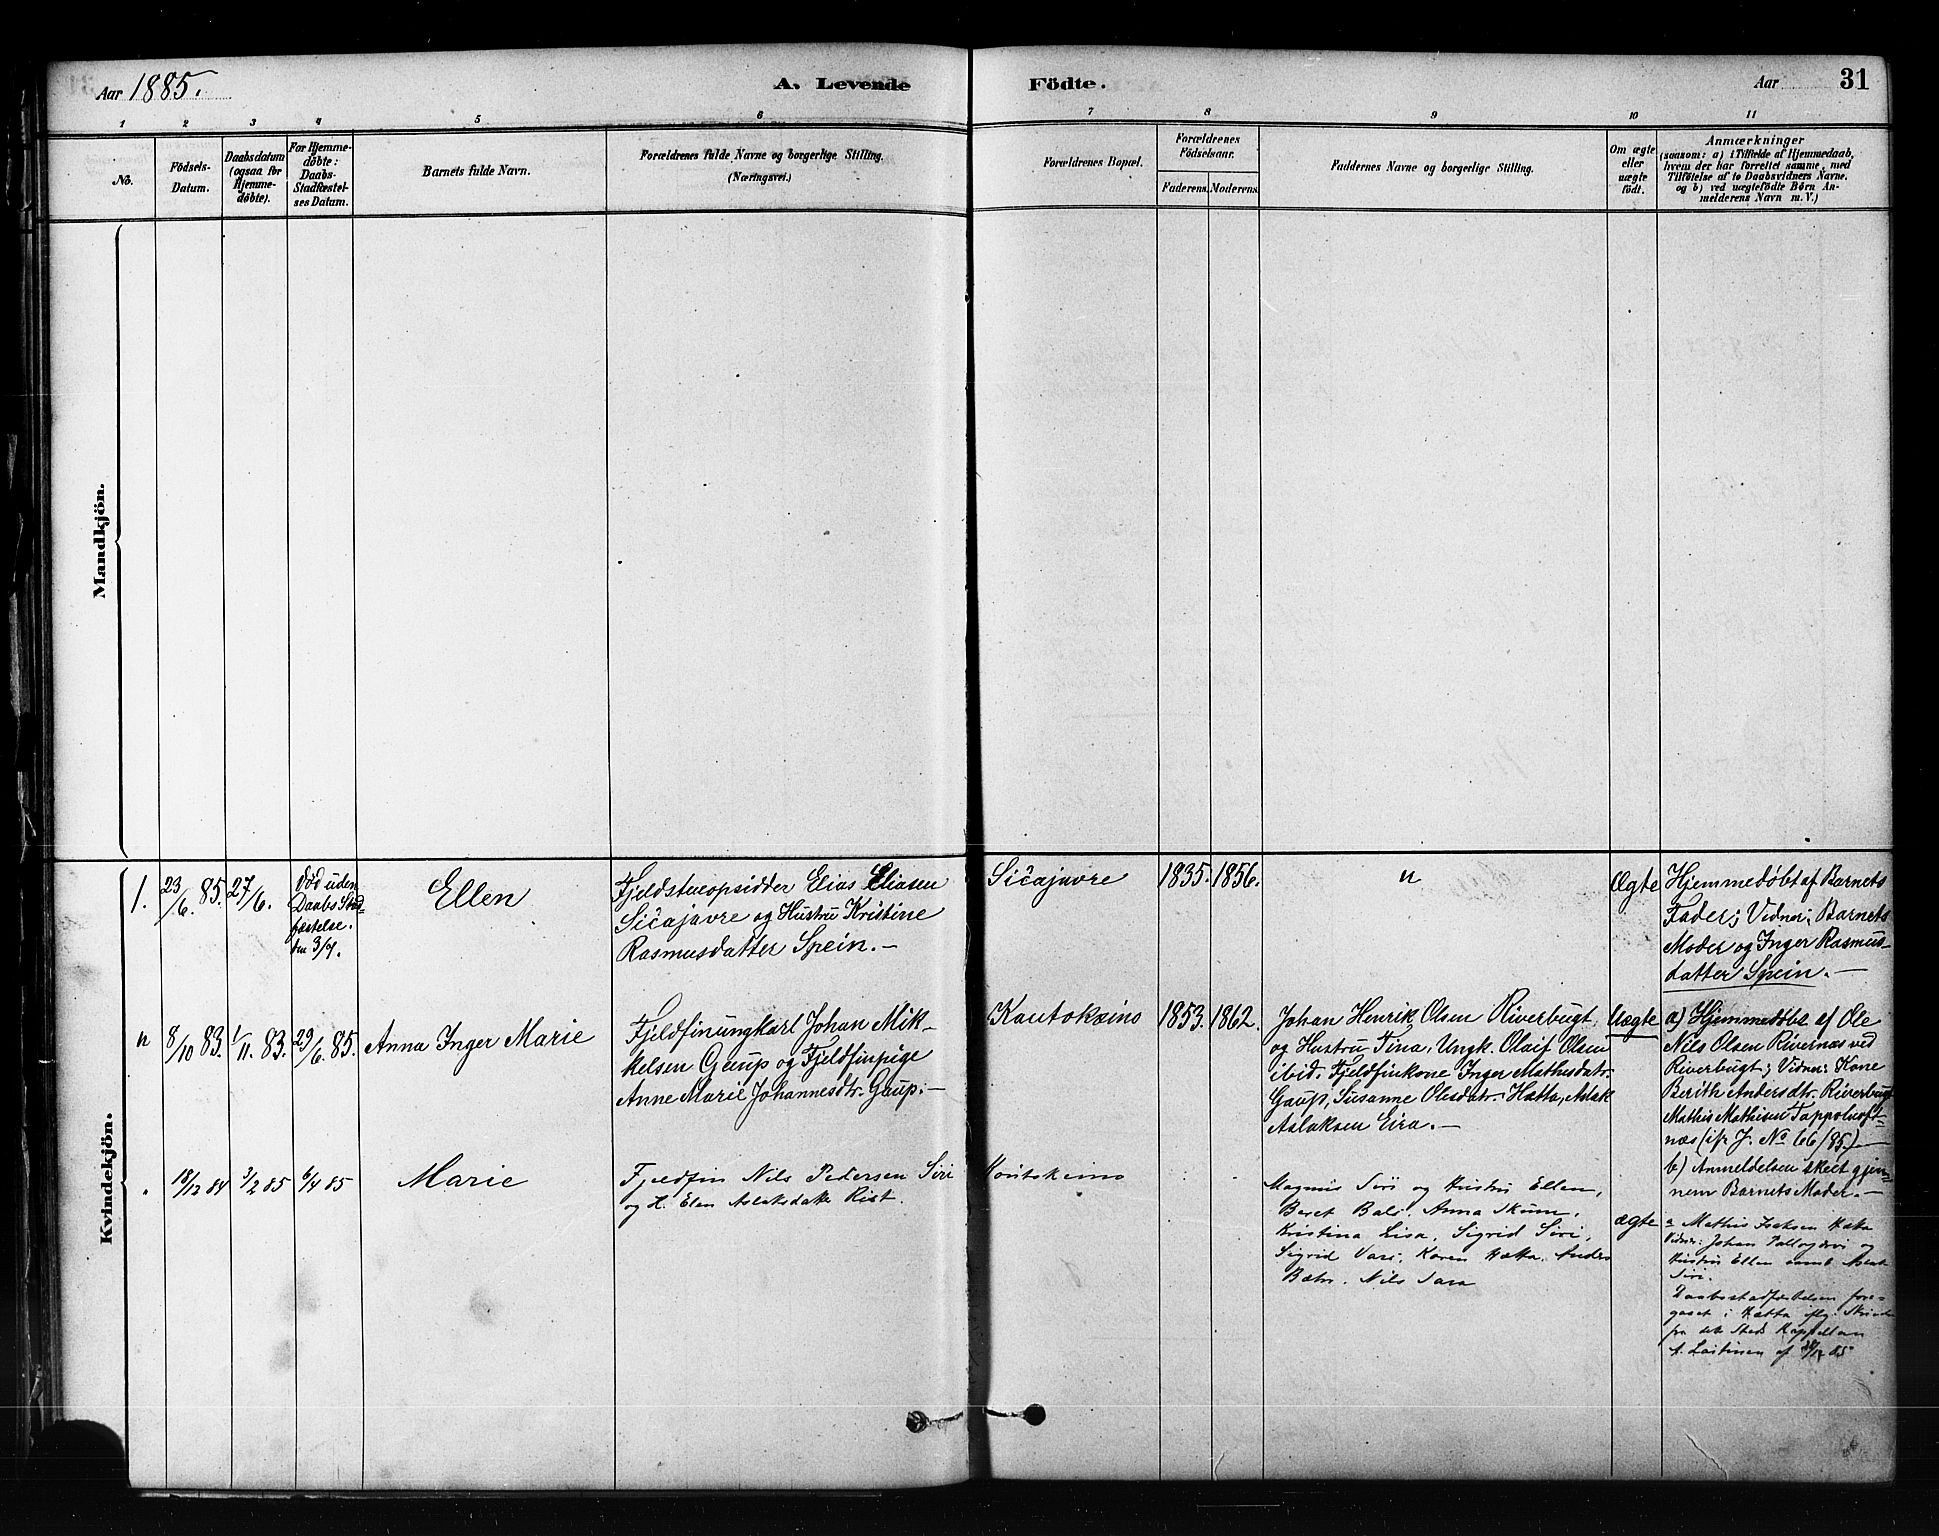 Aar 1885.
A. Levende
Födte.
Aar
31
1
2
3
4
5
6
7
8
9
10
11
No.
Födsels-
Datum.
Daabsdatum
(ogsaa for
Hjemme-
døbte).
For Hjemme-
døbte:
Daabs-
Stadfæstel-
ses Datum.
Barnets fulde Navn.
Forældrenes fulde Navne og borgerlige Stilling.
(Næringsvei.)
Forældrenes Bopæl.
Forældrenes
Födselsaar.
Faderens.
Moderens.
Faddernes Navne og borgerlige Stilling.
Om ægte
eller
uægte
födt.
Anmærkninger
(saasom: a) i Tilfælde af Hjemmedaab,
hvem der har forrettet samme, med
Tilföielse af to Daabsvidners Navne.
og b) ved uægtefödte Börn An-
melderens Navn m. V.)
Mandkjön.
Kvindekjön.
1.
23/6 85.
27/6.
Død uden
Daabs Stad-
fæstelse.
den 3/7.
Ellen
Fjeldstueopsidder Elias Eliasen
Sičajavre og Hustru Kristine
Rasmusdatter Spein.—
Sičajavre
1835.
1856.
"
Ægte
Hjemmedøbt af Barnets
Fader; Vidner: Barnets
Moder og Inger Rasmus-
datter Spein.—
"
8/10 83.
1/11. 83.
29/6. 85.
Anna Inger Marie
Fjeldfinungkarl Johan Mik-
kelsen Gaup og Fjeldfinpige
Anne Marie Johannesdtr. Gaup.—
Kautokeino
1853.
1862.
Johan Henrik Olsen Riverbugt,
og Hustru Tina, Ungk. Olaif Olsen
ibid. Fjeldfinkone Inger Mathisdatr.
Gaup, Susanne Olesdatr. Hætta, Aslak
Aslaksen Eira.—
Uægte
a) Hjemmedøbt af Ole
Nils Olsen Rivernæs ved
Riverbugt; Vidner: Kone
Berith Andersdtr. Riverbugt
Mathis Mathisen Tappoluoft-
næs (ifr J. No 66/85.)
b) Anmeldelsen skeet gjen-
nem Barnets Moder.—
"
18/12 84
3/2 85
6/4 85
Marie
Fjeldfin Nils Pedersen Siri
og H. Elen Aslaksdatter Rist.
Koutokeino
Magnus Siri og Hustru Ellen,
Beret Bals. Anna Skum,
Kristina Lisa, Sigrid Siri,
Sigrid Vasi, Karen Hætta. Anders
Bæhr. Nils Sara
ægte
a Mathis Isaksen Hætta
Vidner: Johan og
Hustru Ellen samt Aslak
Siri.
Daabsstadfæstelsen fore-
gaaet i Hætta iflg.
fra dets Steds Kappellan
A. Laitinen af 85